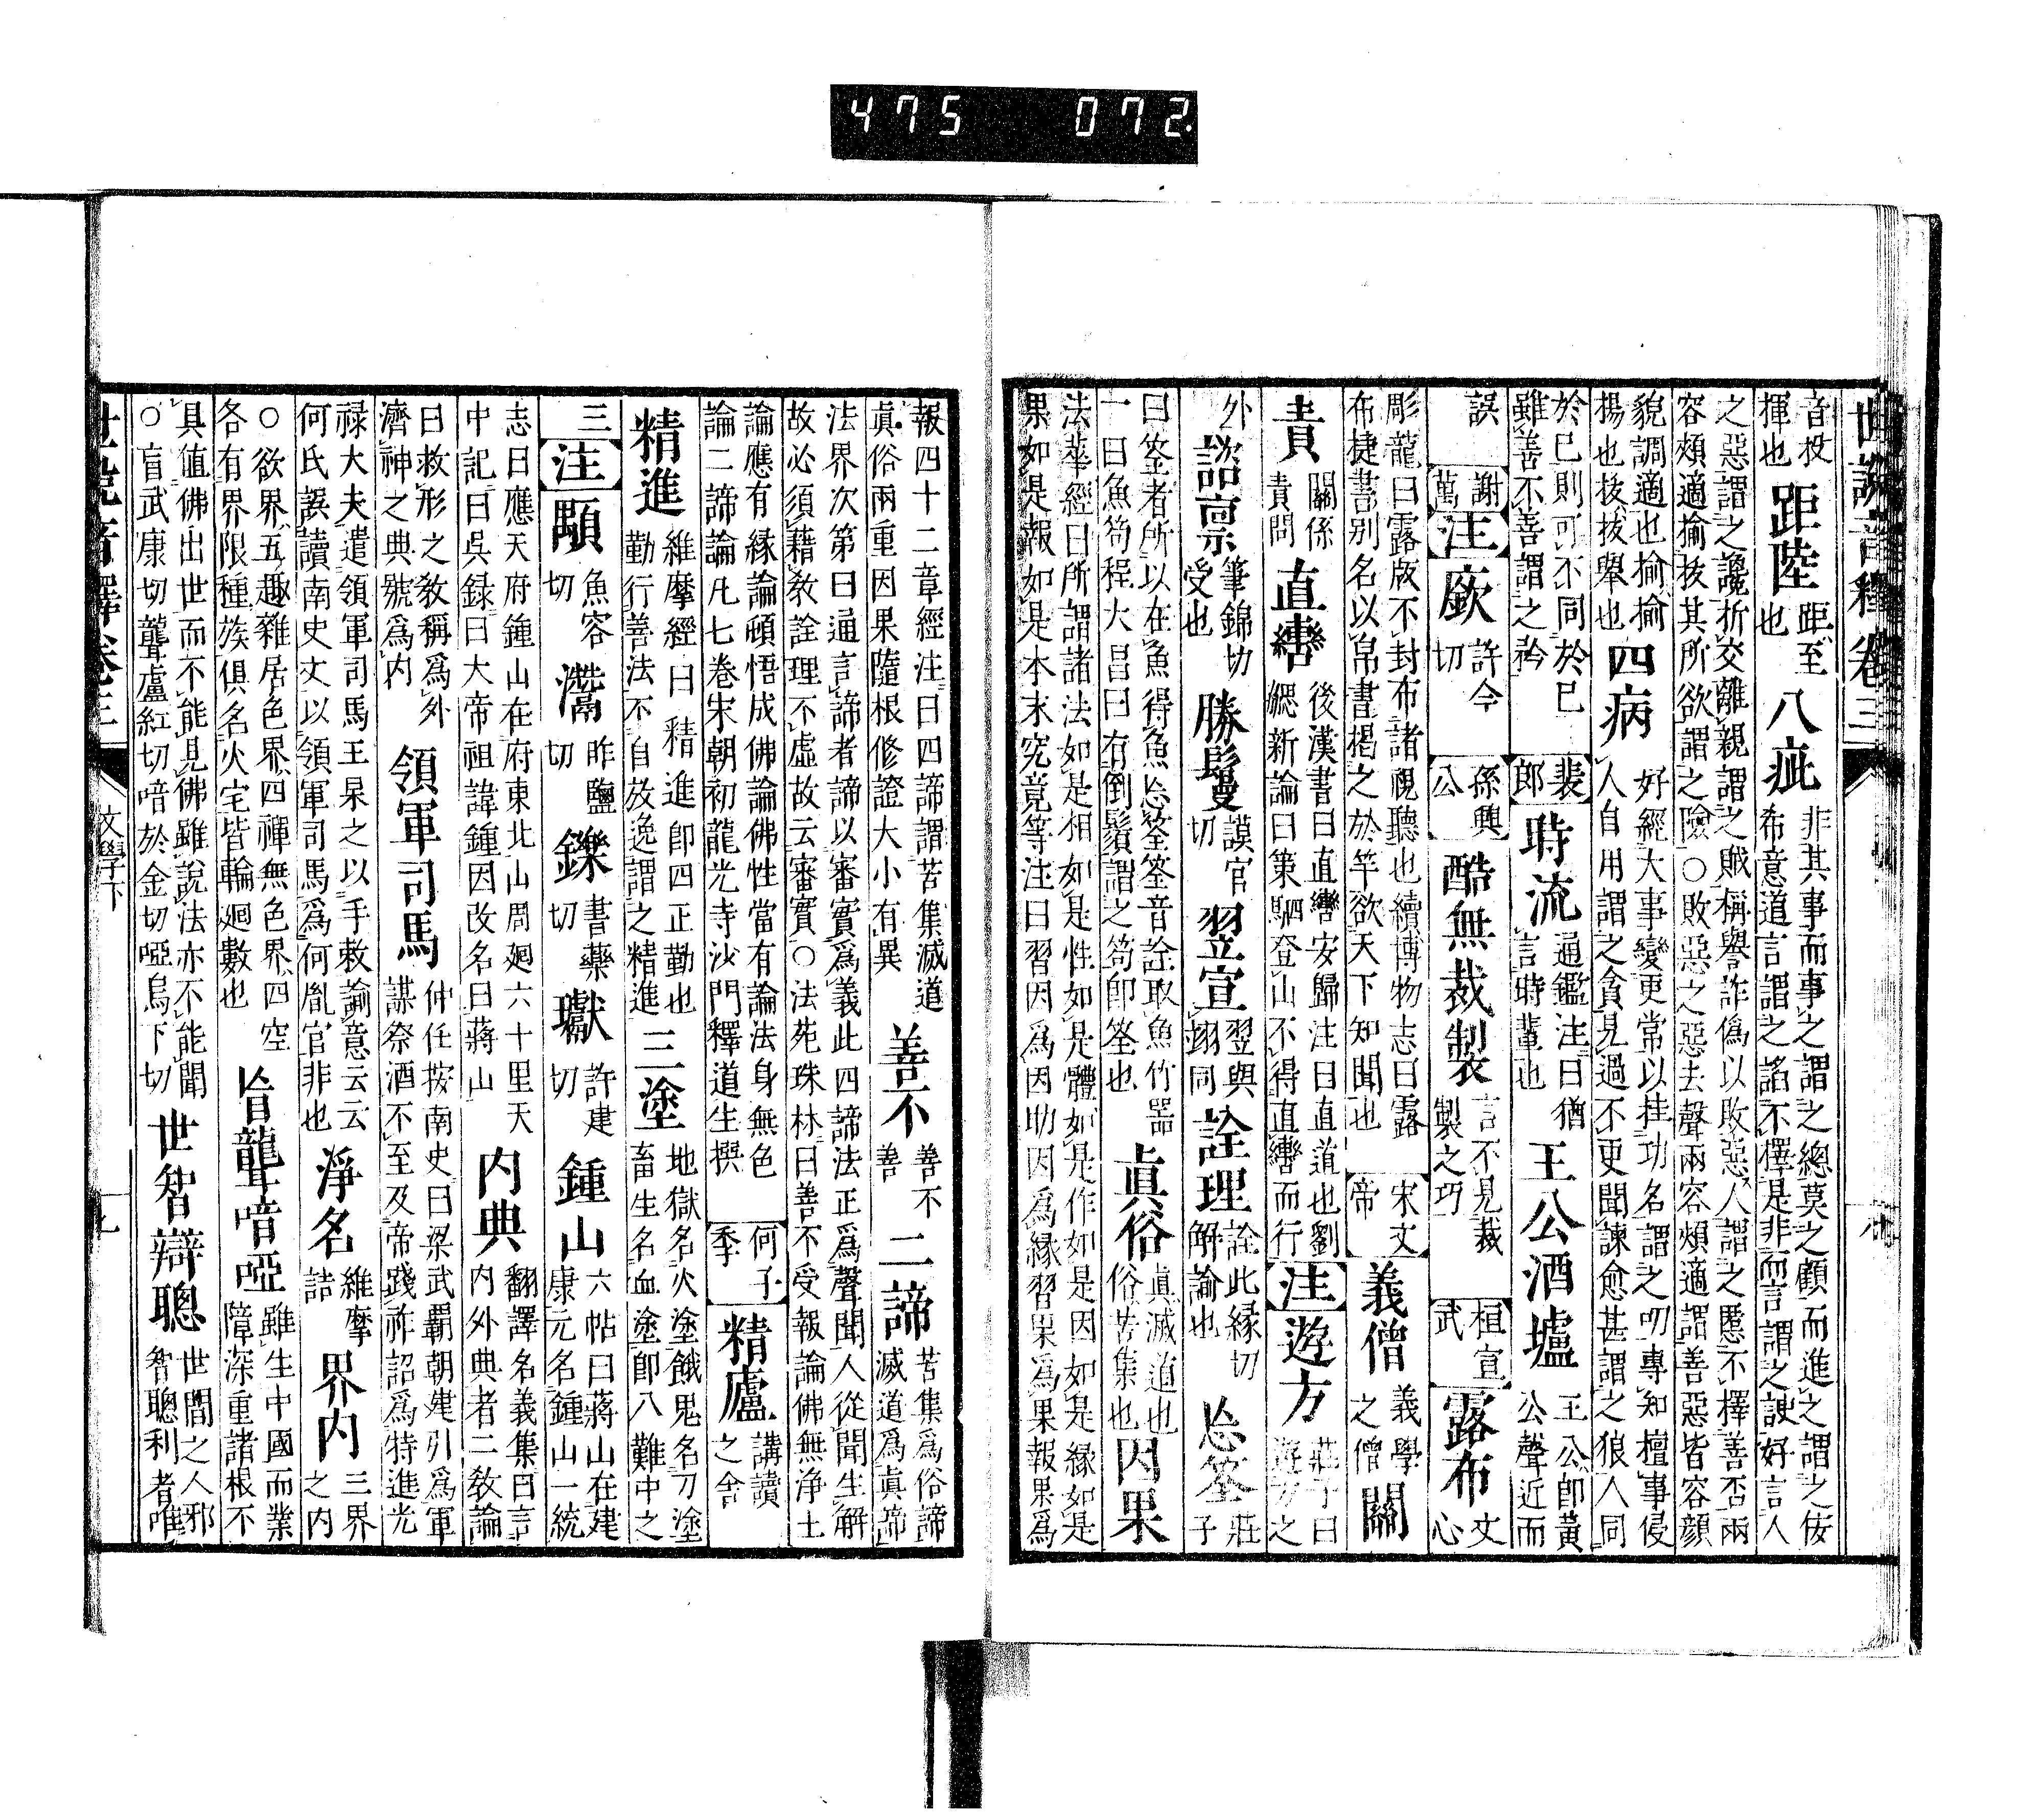 475 072.
世說音釋卷三
音投
揮也
距陸
距至
也
八疵
非其事而事之謂之總莫之顧而進之謂之佞
希意道言謂之諂不擇是非而言謂之諛好言人
之惡謂之讒析交離親謂之賊稱譽詐僞以敗惡人謂之慝不擇善否兩
容頰適揄拔其所欲謂之險○敗惡之惡去聲兩容頰適謂善惡皆容顏
貌調適也揄揄
揚也拔拔舉也
四病
好經大事變更常以挂功名謂之叨專知擅事侵
人自用謂之貪見過不更聞諫愈甚謂之狠人同
於已則可不同於已
雖善不善謂之矜
裴郎
時流
通鑑注曰猶
言時輩也
王公酒壚
王公卽黃
公聲近而
誤
謝萬
注
廞
許今切
孫興公
酷無裁製
言不見裁
製之巧
桓宣武
露布
文
心
彫龍曰露版不封布諸視聽也續博物志曰露
布捷書别名以帛書揭之於竿欲天下知聞也
宋文帝
義僧
義學
之僧
關
責
關係
責問
直轡
後漢書曰直轡安歸注曰直道也劉
勰新論曰策駟登山不得直轡而行
注
遊方
莊子曰
遊方之
外
諮禀
筆錦切
受也
勝鬘
謨官
切
翌宣
翌與
翊同
詮理
詮此緣切
解論也
忘筌
莊
子
曰筌者所以在魚得魚忘筌筌音詮取魚竹器
一曰魚笱程大昌曰有倒鬚謂之笱卽筌也
眞俗
眞滅道也
俗苦集也
因果
法華經曰所謂諸法如是相如是性如是體如是作如是因如是緣如是
果如是報如是本末究竟等注曰習因爲因助因爲緣習果爲果報果爲
報四十二章經注曰四諦謂苦集滅道
眞俗兩重因果隨根修證大小有異
善不
善不
善
二諦
苦集爲俗諦
滅道爲眞諦
法界次第曰通言諦者諦以審實爲義此四諦法正爲聲聞人從聞生解
故必須藉敎詮理不虛故云審實○法苑珠林曰善不受報論佛無淨土
論應有緣論頓悟成佛論佛性當有論法身無色
論二諦論凡七卷宋朝初龍光寺沙門釋道生撰
何子季
精廬
講讀
之舍
精進
維摩經曰精進卽四正勤也
勤行善法不自放逸謂之精進
三塗
地獄名火塗餓鬼名刀塗
畜生名血塗卽八難中之
三
注
顒
魚容
切
灊
昨鹽
切
鑠
書藥
切
瓛
許建
切
鍾山
六帖曰蔣山在建
康元名鍾山一統
志曰應天府鍾山在府東北山周廻六十里天
中記曰吳録曰大帝祖諱鍾因改名曰蔣山
内典
翻譯名義集曰言
内外典者二敎論
曰救形之敎稱爲外
濟神之典號爲内
領軍司馬
仲任按南史曰梁武霸朝建引爲軍
謀祭酒不至及帝踐祚詔爲特進光
禄大夫遣領軍司馬王杲之以手敕諭意云云
何氏誤讀南史文以領軍司馬爲何胤官非也
淨名
維摩
詰
界内
三界
之内
○欲界五趣雜居色界四禪無色界四空
各有界限種族俱名火宅皆輪廻數也
盲聾喑啞
雖生中國而業
障深重諸根不
具值佛出世而不能見佛雖說法亦不能聞
○盲武康切聾盧紅切喑於金切啞烏下切
世智辯聰
世間之人邪
智聰利者唯
世說音釋卷三
文學下